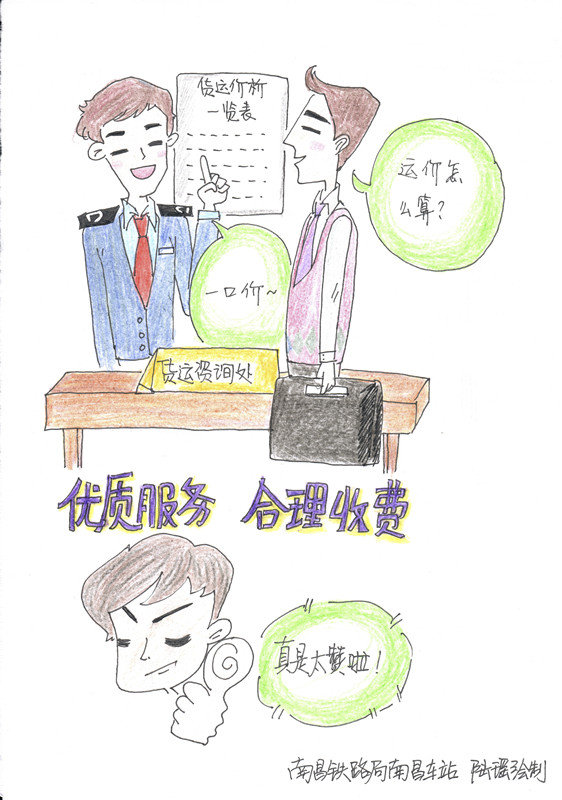 货运价析
一览表
运价怎
么算？
一口价~
货运咨询处
优质服务 合理收费
真是太赞啦！
南昌铁路局南昌车站 陆瑶绘制